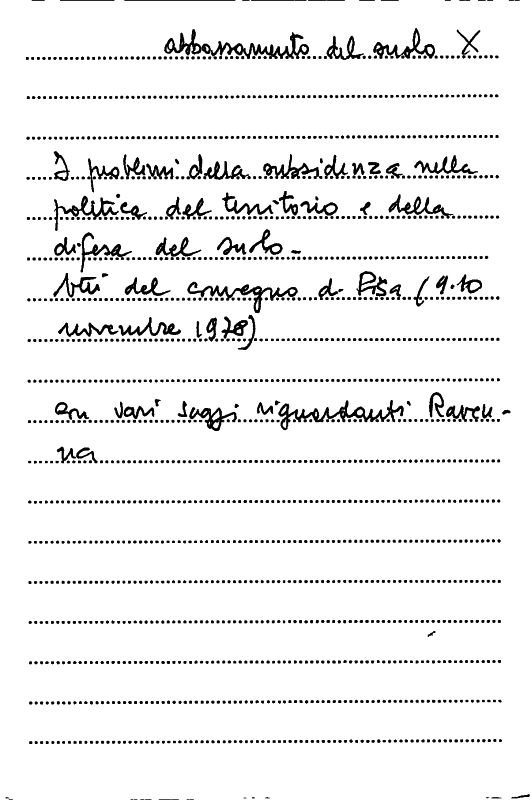 abbassamento del suolo X
I problemi della subsidenza nella
politica del territorio e della
difesa del suolo -
Atti del convegno di Pisa (9-10
novembre 1978)
con vari saggi riguardanti Raven-
na